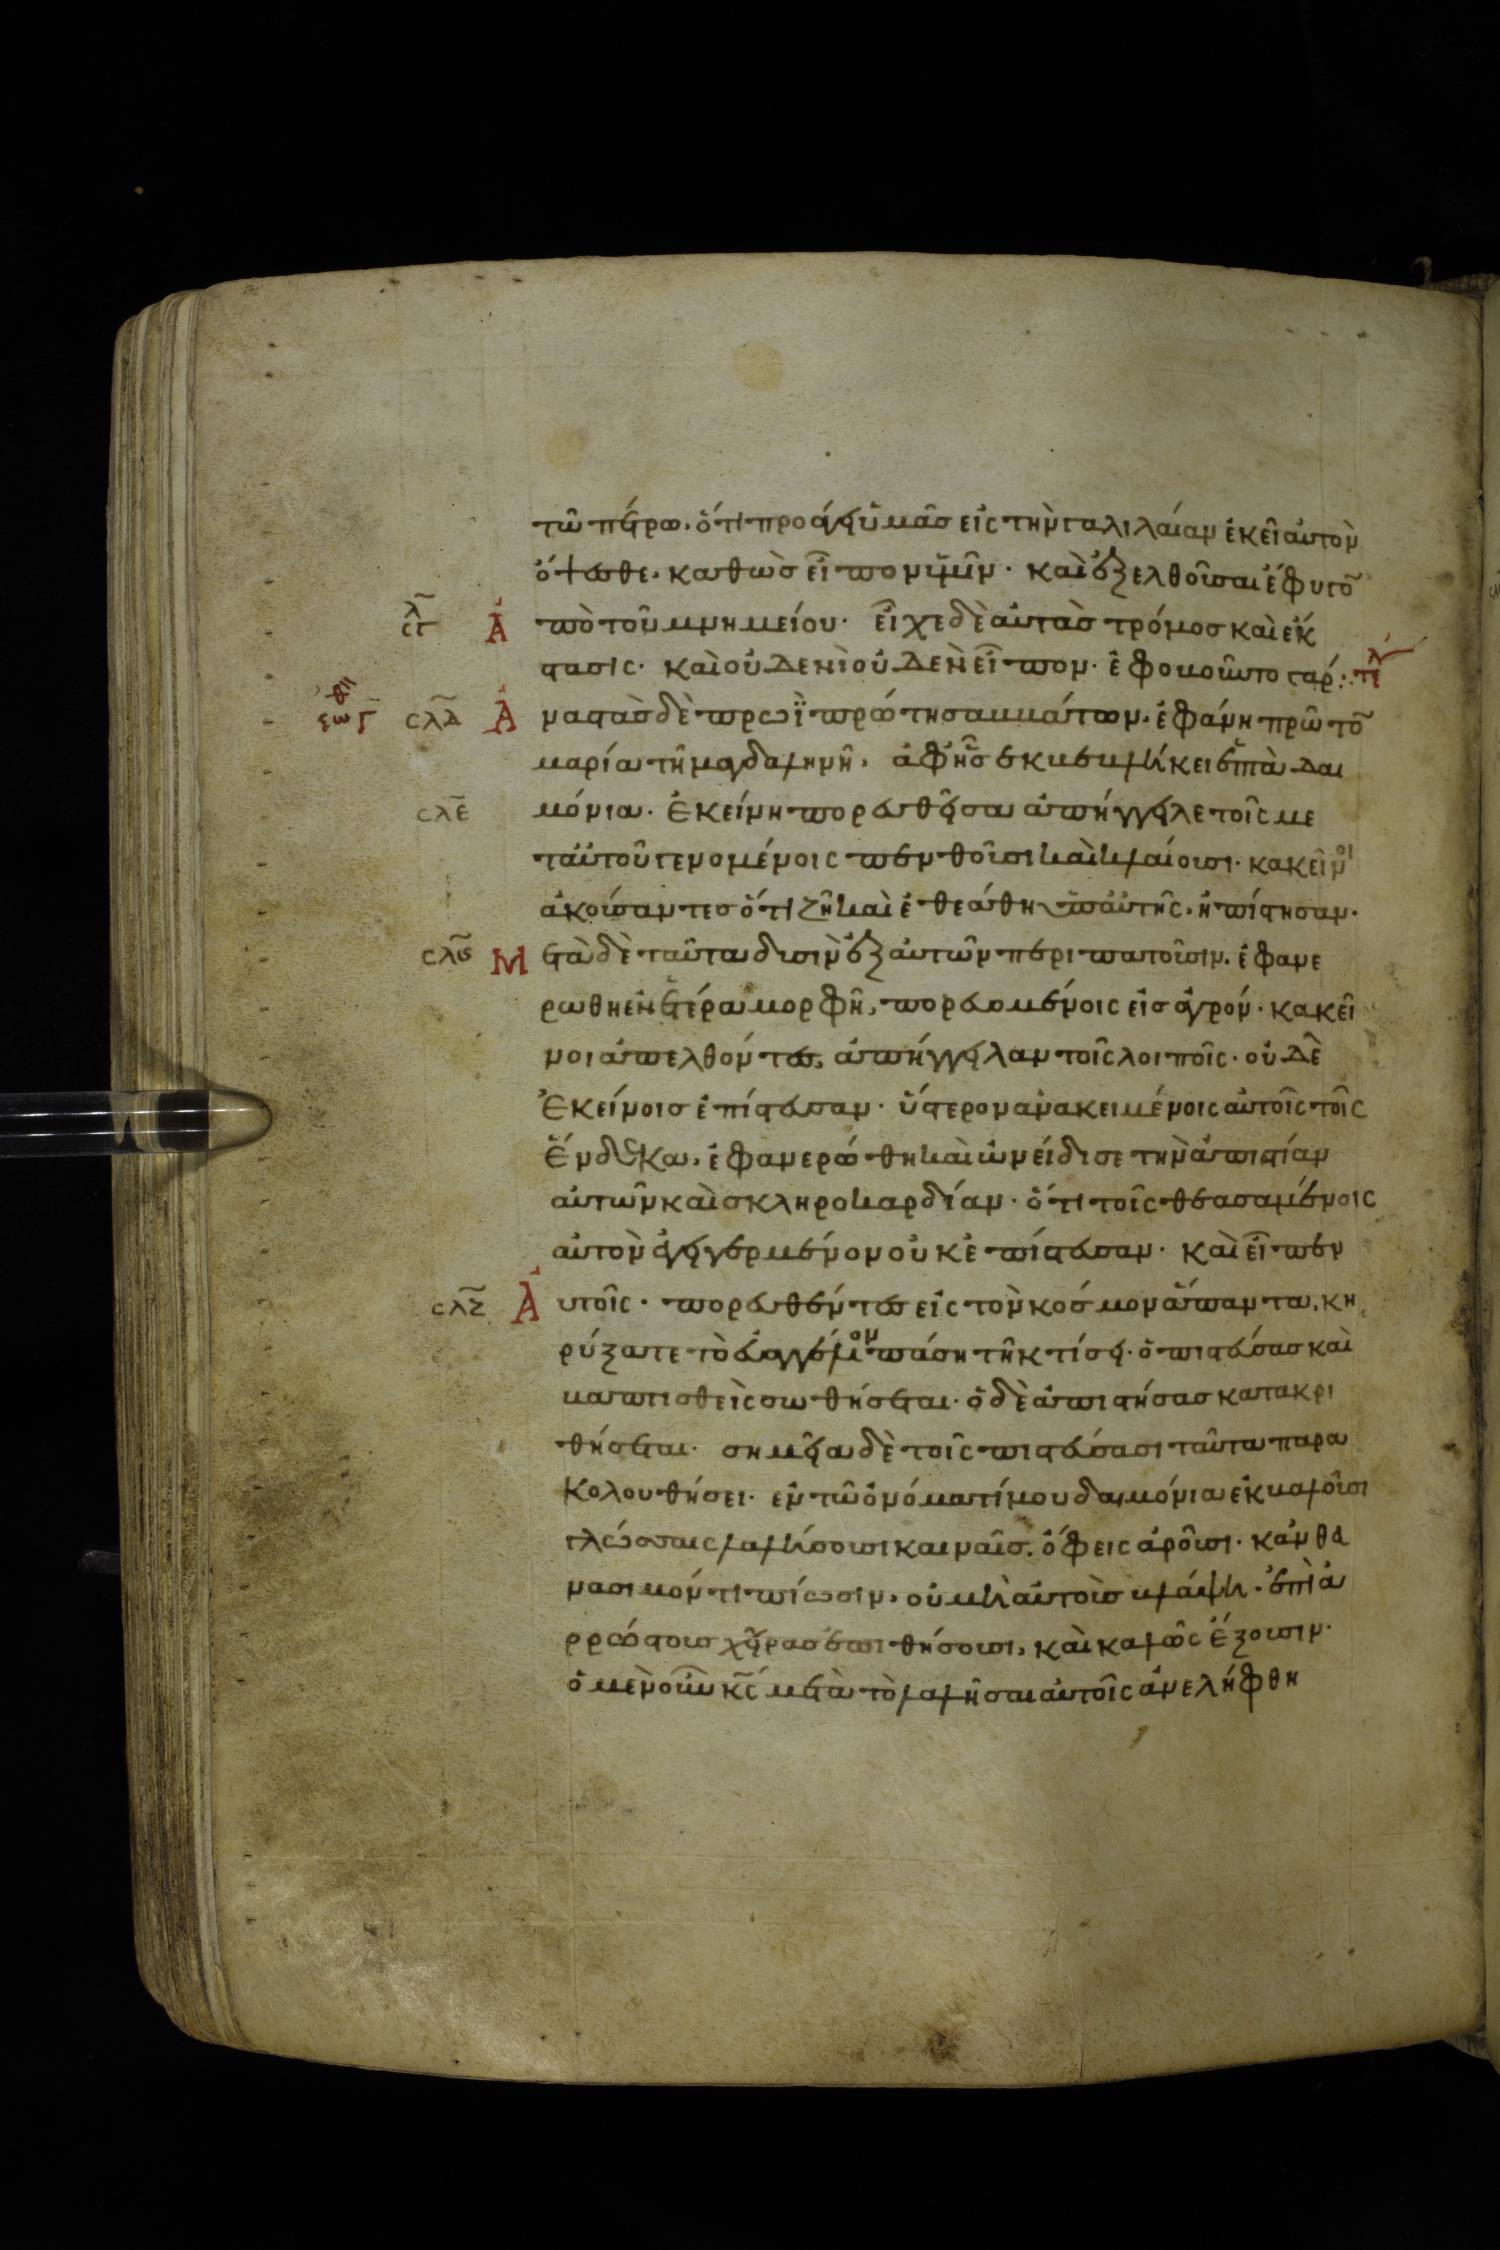 τῶ πέτρω, ὅτι προάγει ὑμᾶσ εἰς τὴν γαλιλαίαν ἐκεῖ αὐτὸν
ὄψεσθε, καθὼσ εἶπον ὑμῖν · καὶ ἐξελθοῦσαι ἔφυγο̃
σλγ Ἀπὸ τοῦ μνημείου · εἶχε δὲ αὐτὰσ τρόμοσ καὶ ἔκ
στασις · καὶ οὐδενὶ οὐδὲν εἶπον · ἐφοβοῦντο γάρ : τλ
ἑωθι Γ σλδ Ἀναστὰσ δὲ πρωῒ πρώτη σαββάτων, ἐφάνη πρῶτο̃
μαρία τῆ μαγδαληνῆ, ἀφ' ἧσ ἐκβεβλήκει ἑπτὰ δαι
σλε μόνια · Ἐκείνη πορευθεῖσα ἀπήγγειλε τοῖς με
τ' αὐτοῦ γενομένοις πενθοῦσι καὶ κλαίουσι · κακεῖνοι
ἀκούσαντεσ ὅτι ζῆ καὶ ἐθεάθη ὑπ' αὐτῆς, ἠπίστησαν ·
σλς Μετὰ δὲ ταῦτα δυσὶν ἐξ αὐτῶν περιπατοῦσιν, ἐφανε
ρώθη ἐν ἑτέρα μορφῆ, πορευομένοις εἰσ ἀγρόν · κακεῖ
νοι ἀπελθόντες, ἀπήγγειλαν τοῖς λοιποῖς · οὐδὲ
Ἐκείνοισ ἐπίστευσαν · ὕστερον ἀνακειμένοις αὐτοῖς τοῖς
Ἕνδεκα, ἐφανερώθη καὶ ὠνείδισε τὴν ἀπιστίαν
αὐτῶν καὶ σκληροκαρδίαν · ὅτι τοῖς θεασαμένοις
αὐτὸν ἐγηγερμένον οὐκ ἐπίστευσαν · καὶ εἶπεν
σλζ Ἀυτοῖς · πορευθέντεσ εἰς τὸν κόσμον ἅπαντα, κη
ρύξατε τὸ εὐαγγέλιον πάση τῆ κτίσει · ὁ πιστεύσασ καὶ
βαπτισθεὶς σωθήσεται · ὁ δὲ ἀπιστήσασ κατακρι
θήσεται · σημεῖα δὲ τοῖς πιστεύσασι ταῦτα παρα
κολουθήσει · ἐν τῶ ὀνόματί μου δαιμόνια ἐκβαλοῦσι
γλώσσαις λαλήσουσι καιναῖσ, ὄφεις ἀροῦσι · κἂν θα
νάσιμόν τι πίωσιν, οὐ μὴ αὐτοὺσ βλάψη · ἐπὶ ἀ
ρρώστουσ χεῖρασ ἐπιθήσουσι, καὶ καλῶς ἕξουσιν ·
ὁ μὲν οὖν κ̅ς̅ μετὰ τὸ λαλῆσαι αὐτοῖς ἀνελήφθη